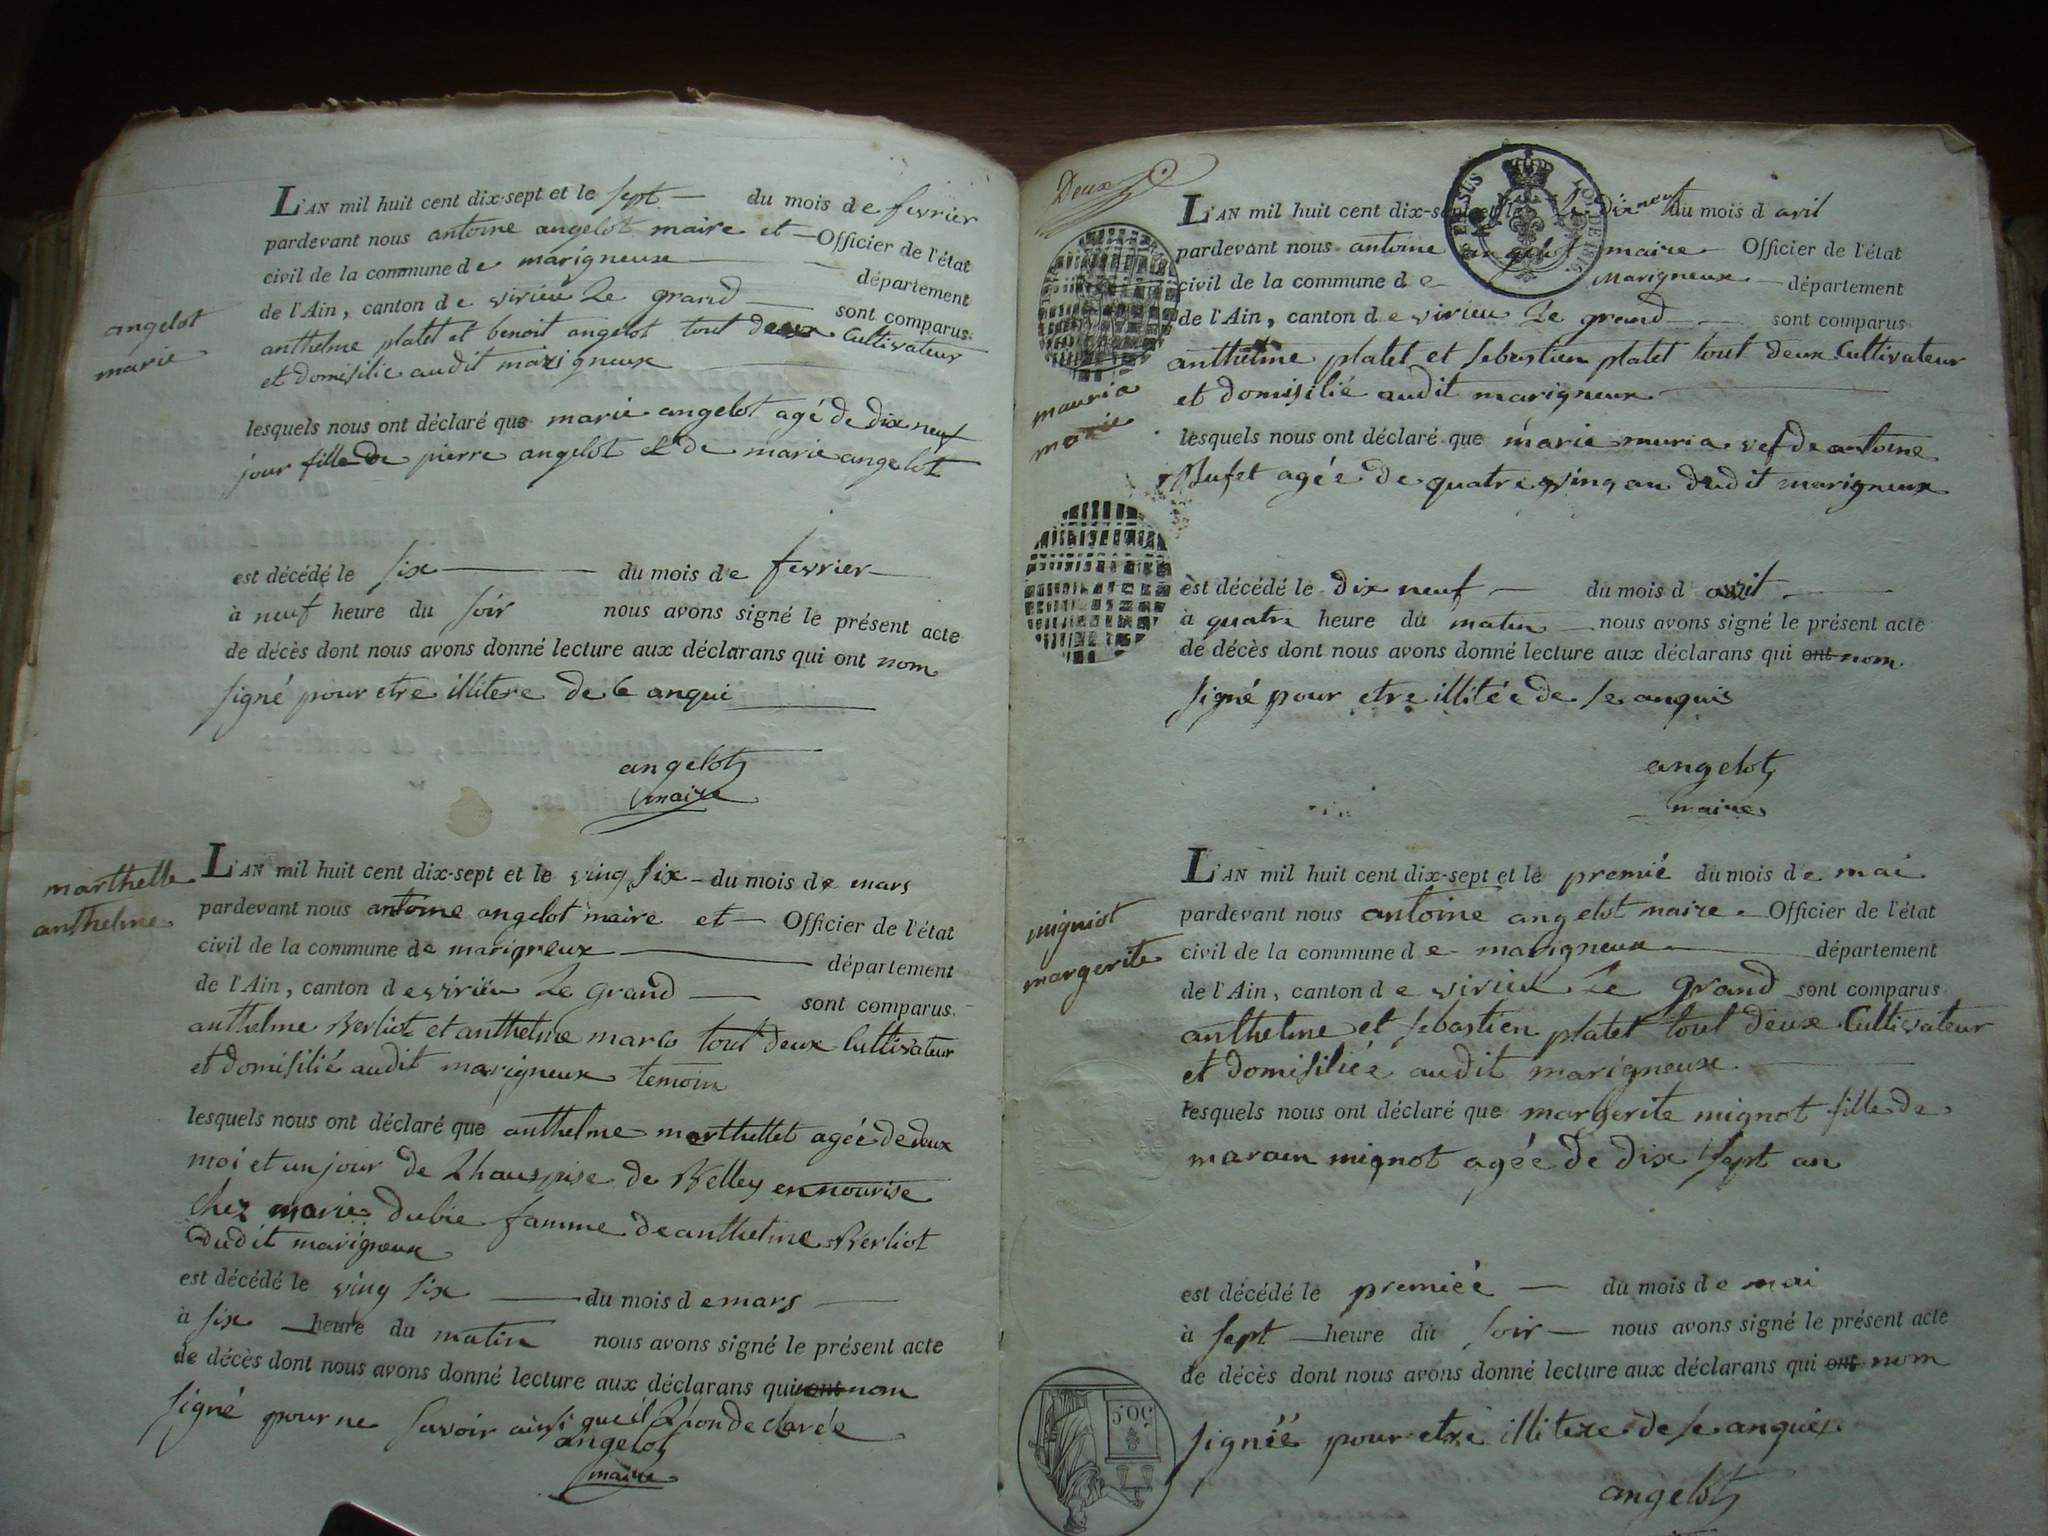 L'AN mil huit cent dix-sept et le sept du mois de fevrier
pardevant nous antoine angelot maire et Officier de l'état
civil de la commune de marigneux département
de l'Ain, canton de virieu Le grand sont comparus
anthelme platet et benoit angelot tout deux Cultivateur
et domisilie audit marigneux
angelot
marie
lesquels nous ont déclaré que marie angelot agé de dix neuf
jour fille de pierre angelot et de marie angelot
est décédé le six du mois de fevrier
à neuf heure du soir nous avons signé le présent acte
de décès dont nous avons donné lecture aux déclarans qui ont nom
signé pour etre illitere de ce anqui
angelot
maire
marthelle
anthelme
L'AN mil huit cent dix-sept et le ving six du mois de mars
pardevant nous antoine angelot maire et Officier de l'état
civil de la commune de marigneux département
de l'Ain, canton de virieu Le grand sont comparus
anthelme Berliot et anthelme marlo tout deux Cultivateur
et domisilié audit marigneux temoin
lesquels nous ont déclaré que anthelme marthellet agée de deux
moi et un jour de Lhauspise de Belley en nourise
chez marie dubie famme de anthelme Berliot
dudit marigneux
est décédé le ving six du mois de mars
à six heure du matin nous avons signé le présent acte
de décès dont nous avons donné lecture aux déclarans qui ont nom
signé pour ne savoir ainsi queil Lhon declarée
angelot
maire
Deux
L'AN mil huit cent dix-sept et le dix neuf du mois d avil
pardevant nous antoine angelot maire Officier de l'état
civil de la commune de Marigneux département
de l'Ain, canton de virieu Le grand sont comparus
anthelme platet et sebastien platet tout deux Cultivateur
et domisilié audit marigneux
mauria
marie
lesquels nous ont déclaré que marie muria vef de antoine
Bufet agée de quatre ving an dudit marigneux
est décédé le dix neuf du mois d avril
à quatre heure du matin nous avons signé le présent acte
de décès dont nous avons donné lecture aux déclarans qui ont nom
signé pour etre illitée de se anquis
angelot
maire
L'AN mil huit cent dix-sept et le premié du mois de mai
pardevant nous antoine angelot maire Officier de l'état
civil de la commune de marigneux département
de l'Ain, canton de virieu Le grand sont comparus
anthelme et sebastien platet tout deux Cultivateur
et domisiliéé audit marigneux
migniot
margerite
lesquels nous ont déclaré que margerite mignot fille de
marain mignot agée de dix sept an
est décédé le premiéé du mois de mai
à sept heure du soir nous avons signé le présent acte
de décès dont nous avons donné lecture aux déclarans qui ont nom
signéé pour etre illitere de se anquis
angelot